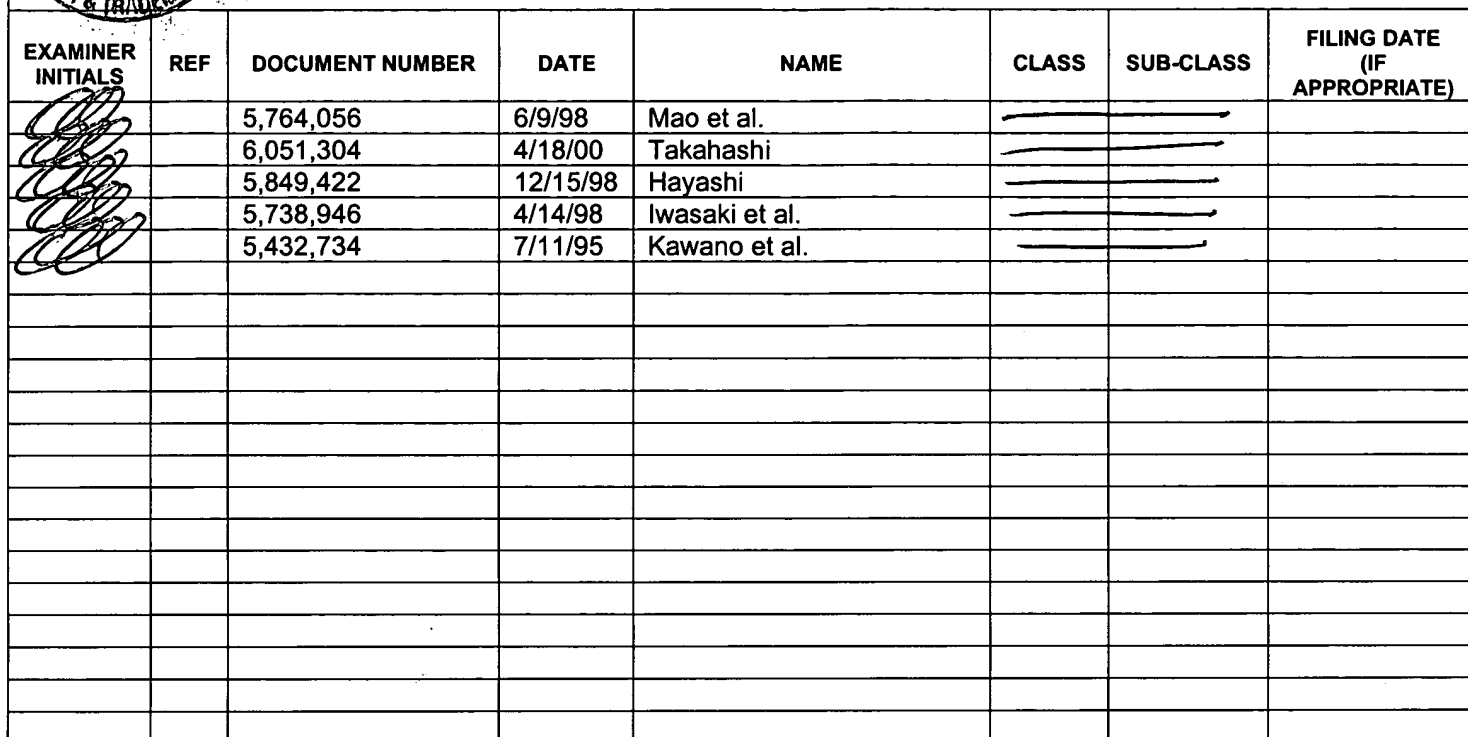 & TRADEM
EXAMINER INITIALS REF DOCUMENT NUMBER DATE NAME CLASS SUB-CLASS FILING DATE (IF APPROPRIATE)
5,764,056 6/9/98 Mao et al.
6,051,304 4/18/00 Takahashi
5,849,422 12/15/98 Hayashi
5,738,946 4/14/98 Iwasaki et al.
5,432,734 7/11/95 Kawano et al.